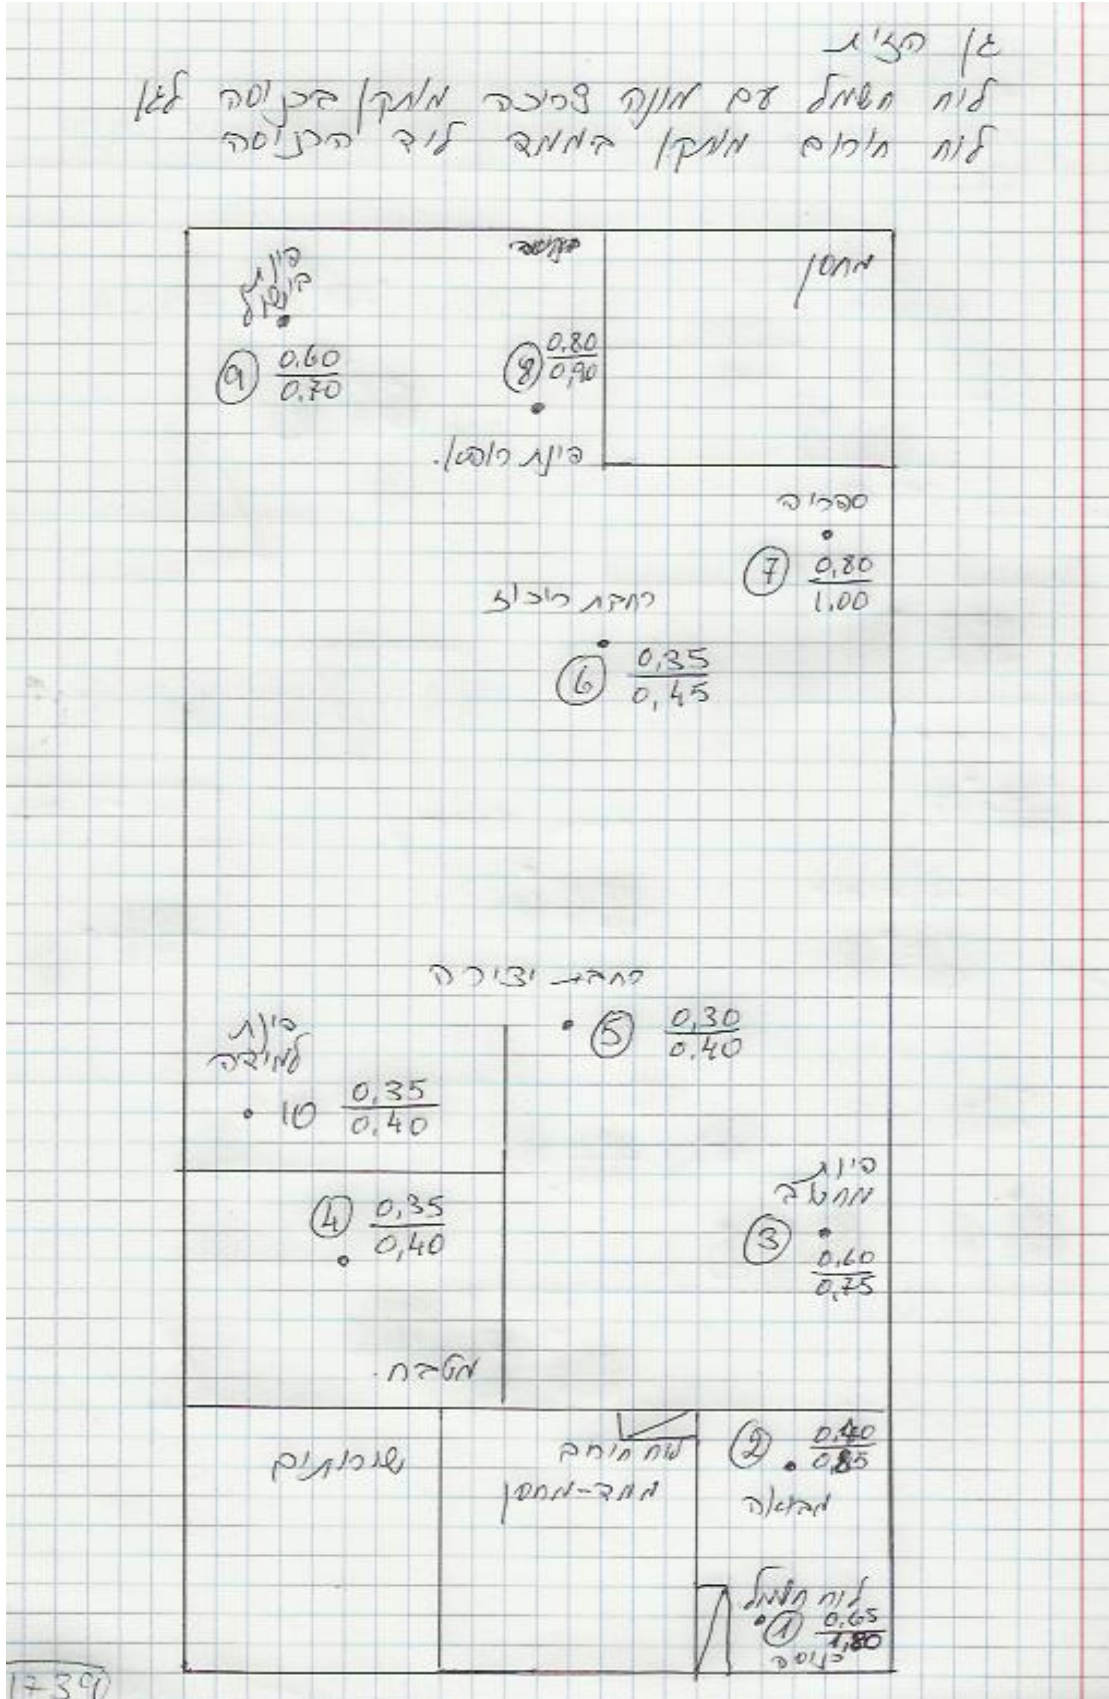 גן הזית
לוח חשמל עם מונה צריכה מותקן בכניסה לגן
לוח חירום מותקן בממד ליד הכניסה
פינת
בישול
מחסן
9 0,60
0,70
8 0,80
0,90
פינת רופא.
ספריה
7 0,80
1,00
רחבת ריכוז
6 0,35
0,45
רחבת יצירה
5 0,30
0,40
פינת
למידה
10 0,35
0,40
4 0,35
0,40
פינת
מחשב
3 0,60
0,75
מטבח.
שירותים
לוח חירום
ממד-מחסן
2
מבואה
לוח חשמל
1 0,65
1,80
כניסה
1739